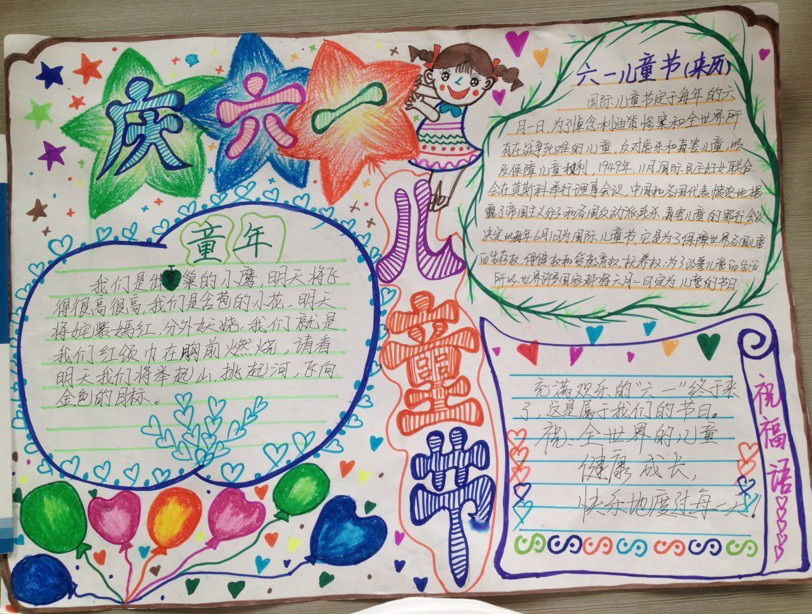 庆六一
儿童节
童年
我们是出巢的小鹰,明天将飞
得很高很高,我们是含苞的小花,明天
将姹紫嫣红,分外妖娆,我们就是
我们红领巾在胸前燃烧,请看
明天我们将举起山,挑起河,飞向
金色的目标。
六一儿童节(来历)
国际儿童节定于每年的六
月一日,为了悼念利迪策惨案和全世界所
有在战争死难的儿童,反对虐杀和毒害儿童,以
及保障儿童权利,1949年,11月国际民主妇女联合
会在莫斯科举行理事会议,中国和各国代表愤怒地揭
露了帝国主义
决定以每年6月1日为国际儿童节,它是为了保障世界各国儿童
的生存权,保健权和受教育权,抚养权,为了改善儿童的生活
所以,世界许国家都将六月一日定为儿童的节日
祝福语
充满欢乐的"六一"终于来
了,这是属于我们的节日。
祝:全世界的儿童
健康成长,
快乐地度过每一天!